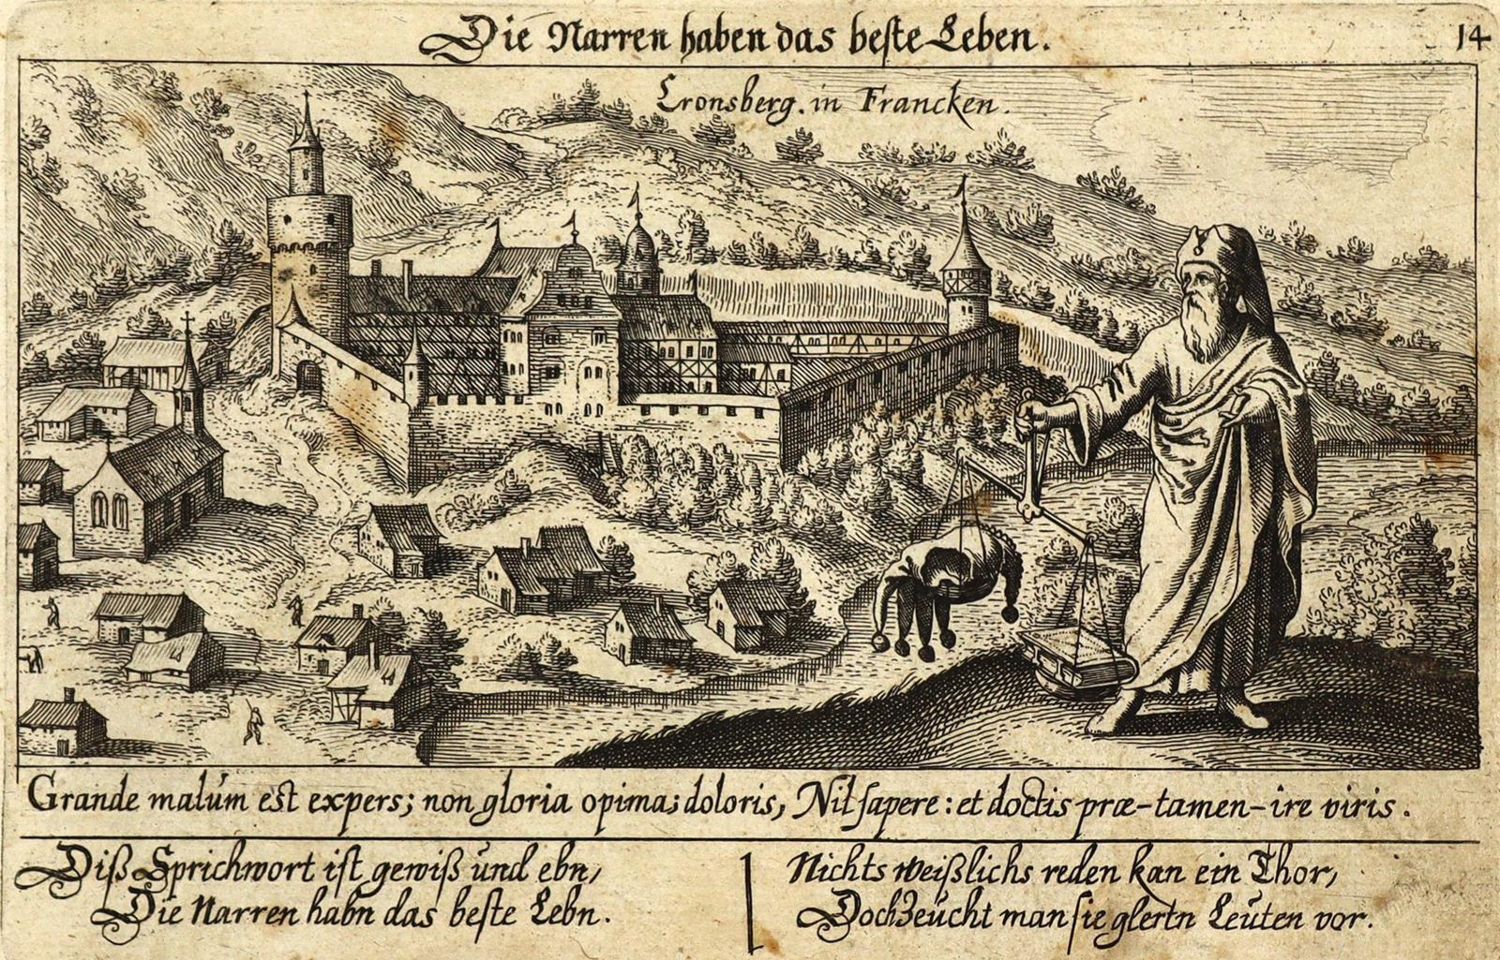 Die Narren haben das beste Leben.
14
Cronsberg. in Francken.
Grande malum est expers; non gloria opima; doloris, Nil sapere: et doctis præ-tamen-ire viris.
Diß Sprichwort ist gewiß und ebn,
Die Narren habn das beste Lebn.
Nichts weißlichs reden kan ein Thor,
Doch zeucht man sie glertn Leuten vor.